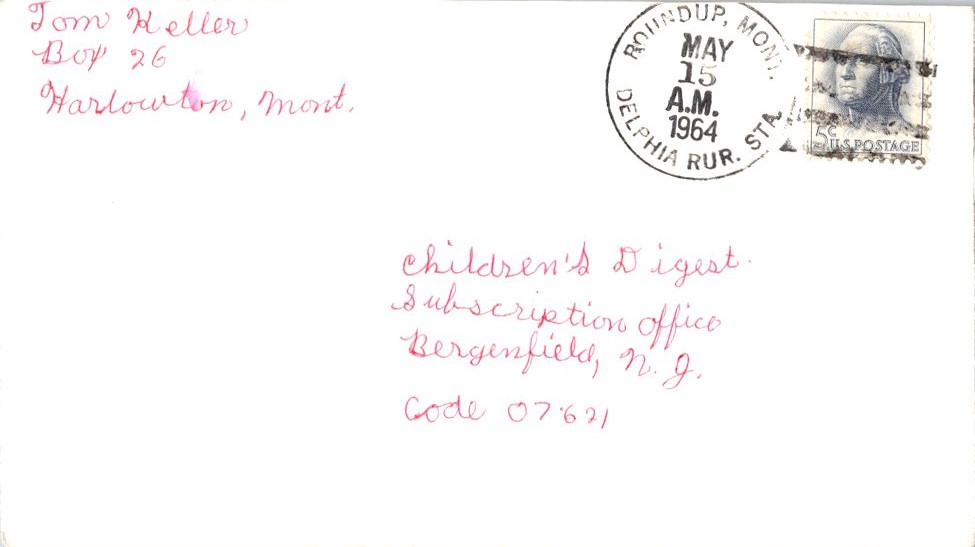 Tom Keller
Box 26
Harlowton, Mont.
ROUNDUP, MONT.
MAY
15
A.M.
1964
DELPHIA RUR. STA.
5c
U.S. POSTAGE
Children's Digest.
Subscription office
Bergenfield, N. J.
Code 07621